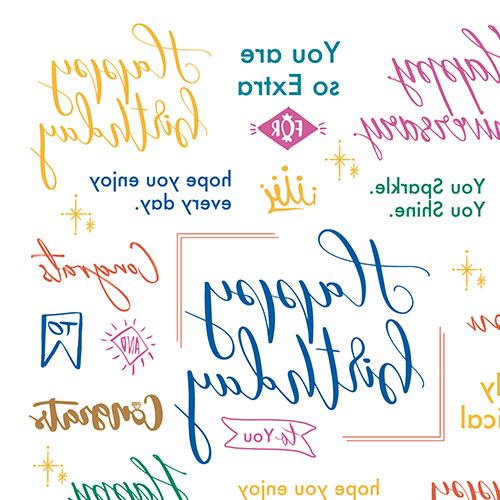 Happy
birthday
You are
so Extra
FOR
Happy
hope you enjoy
every day.
You Sparkle.
You Shine.
Congrats
Happy
birthday
TO
AND
Congrats
to You
ical
Happy
hope you enjoy